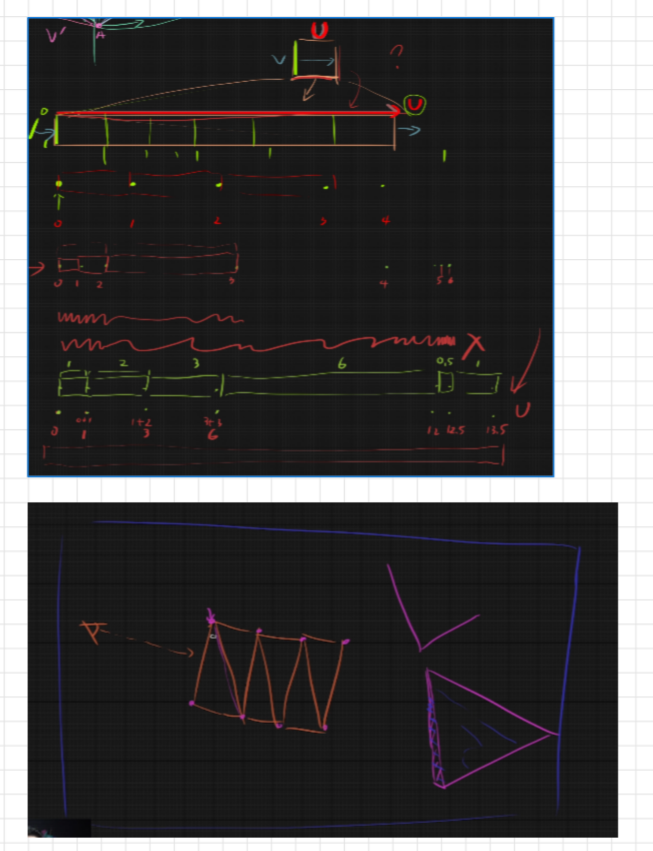 V' A 2
U
V ?
0 U
1
0 1 2 3 4
0 1 2 3 4 5 6
X
1 2 3 6 0,5 1
U
0 0+1 1+2 3+3 12 12.5 13.5
1 3 6